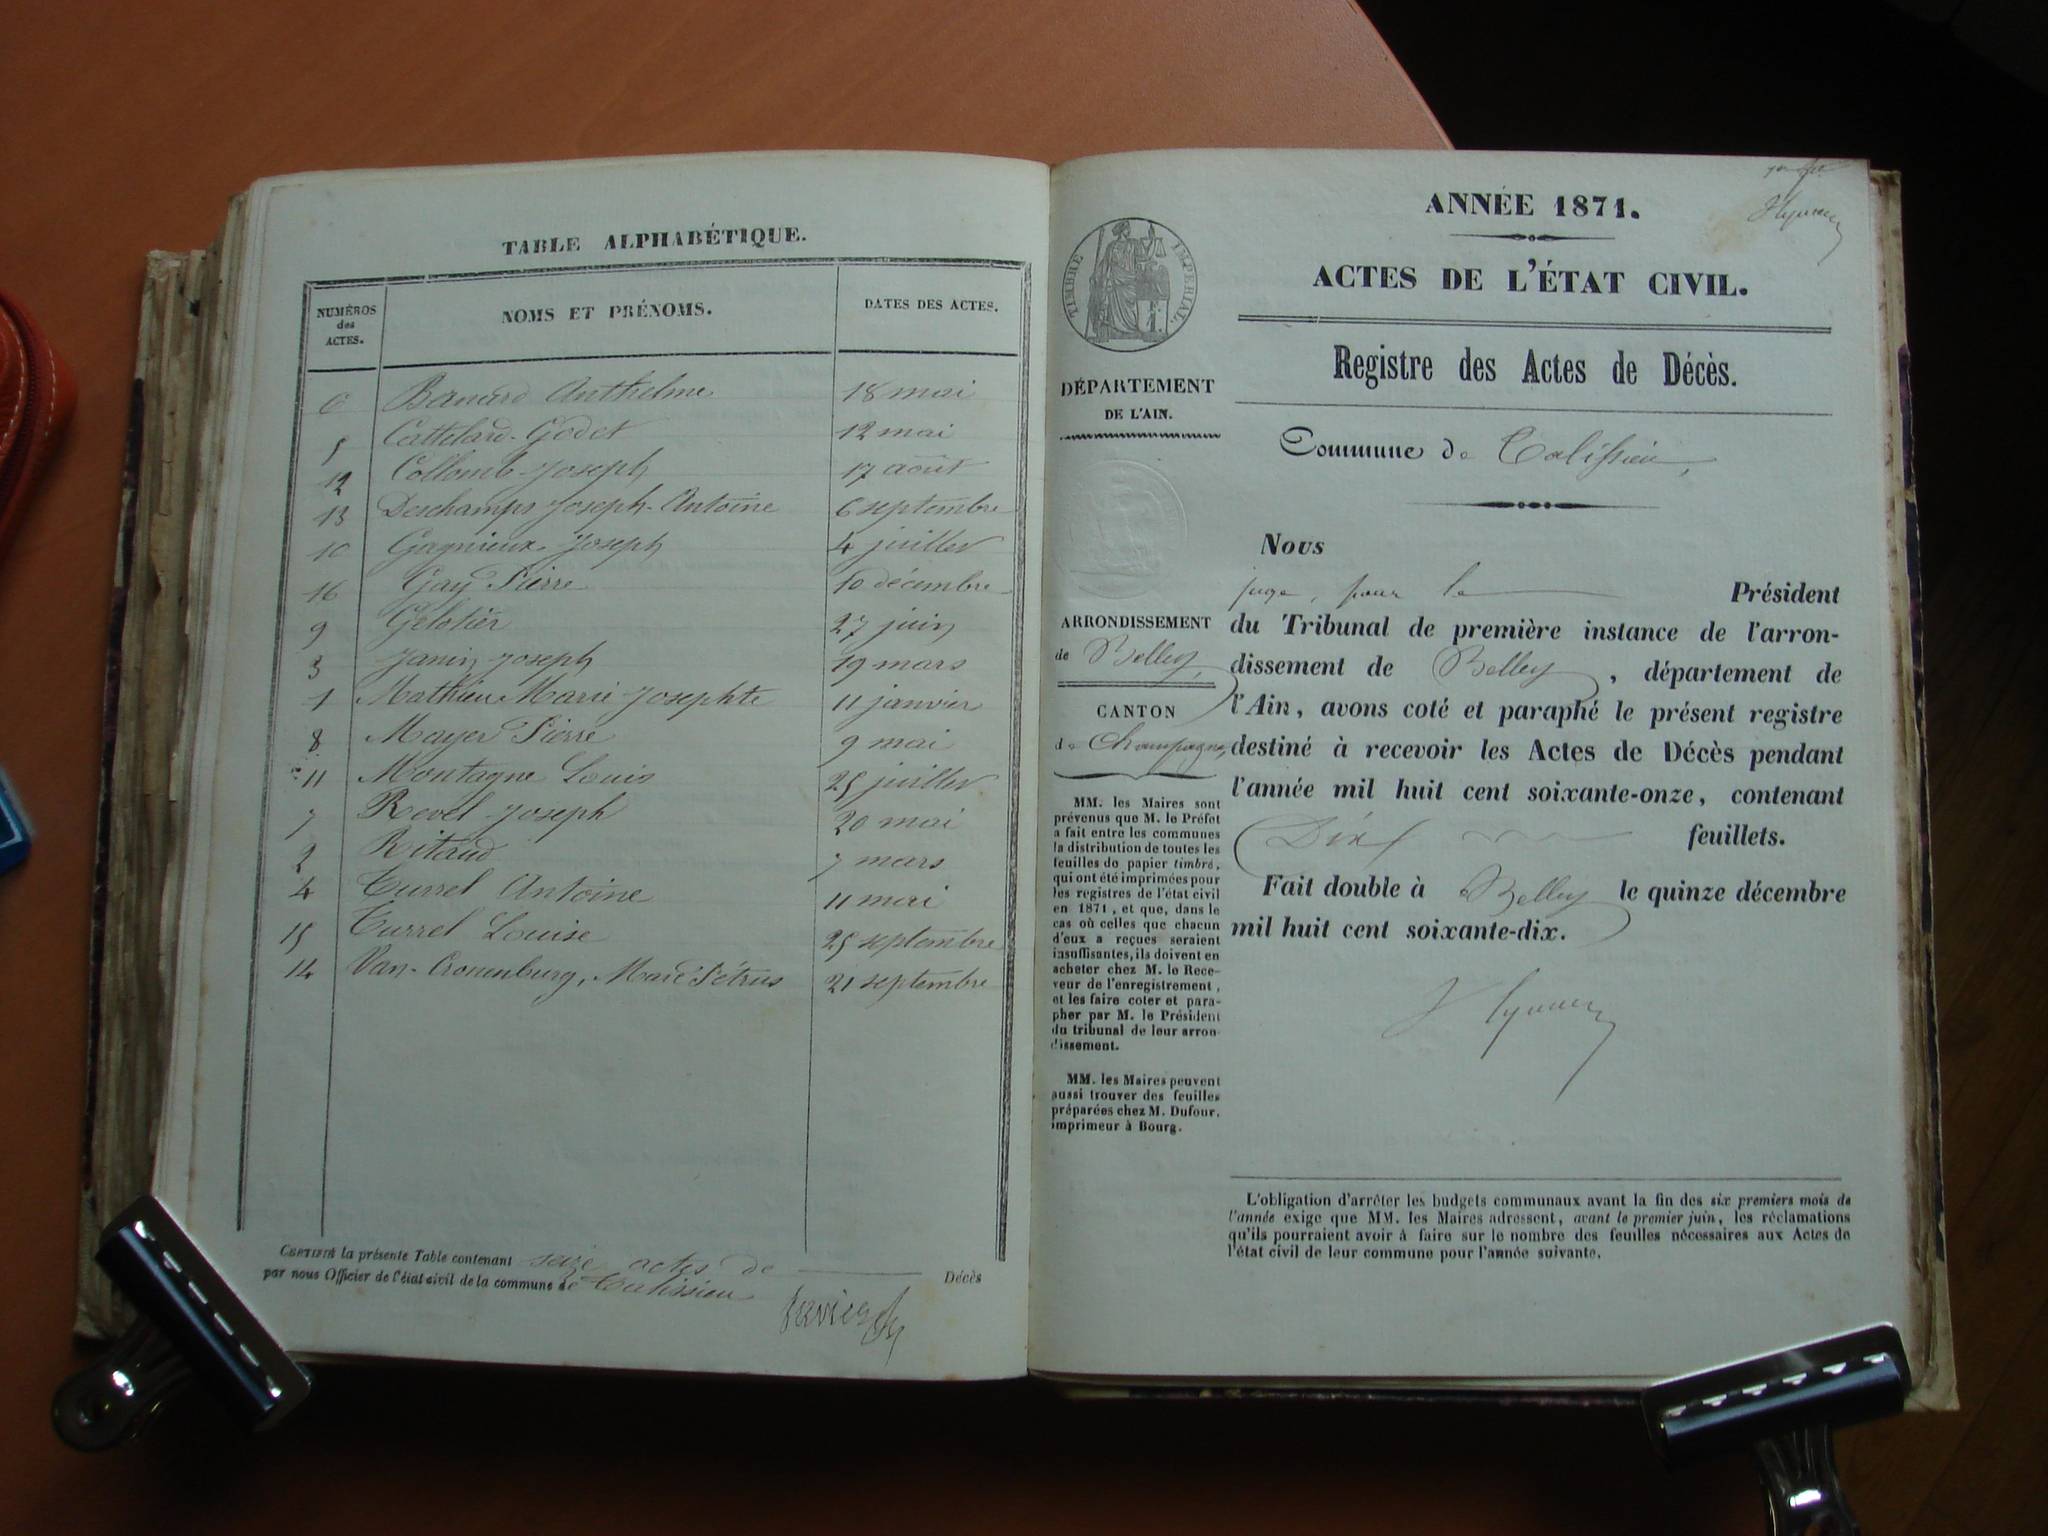 TABLE ALPHABÉTIQUE.
NUMÉROS des ACTES. NOMS ET PRÉNOMS. DATES DES ACTES.
6 Bernard Anthelme 18 mai
5 Cattelard-Godet 12 mai
12 Collomb Joseph 17 août
13 Deschamps Joseph-Antoine 6 septembre
10 Gagnieux Joseph 4 juillet
16 Gay Pierre 10 décembre
9 Gelotier 27 juin
3 Janin Joseph 19 mars
1 Mathieu Marie Josephte 11 janvier
8 Mayer Pierre 9 mai
11 Montagne Louis 25 juillet
7 Revel Joseph 20 mai
2 Ritaud 7 mars
4 Turrel Antoine 11 mai
15 Turrel Louise 25 septembre
14 Van-Cronenburg, Marc Pétrus 21 septembre
CERTIFIÉ la présente Table contenant seize actes de Décès
par nous Officier de l'état civil de la commune de Talissieu
ANNÉE 1871.
ACTES DE L'ÉTAT CIVIL.
TIMBRE IMPÉRIAL.
Registre des Actes de Décès.
DÉPARTEMENT
DE L'AIN.
Commune de Talissieu,
ARRONDISSEMENT
de Belley,
CANTON
de Champagne,
MM. les Maires sont
prévenus que M. le Préfet
a fait entre les communes
la distribution de toutes les
feuilles de papier timbré,
qui ont été imprimées pour
les registres de l'état civil
en 1871, et que, dans le
cas où celles que chacun
d'eux a reçues seraient
insuffisantes, ils doivent en
acheter chez M. le Rece-
veur de l'enregistrement,
et les faire coter et para-
pher par M. le Président
du tribunal de leur arron-
dissement.
MM. les Maires peuvent
aussi trouver des feuilles
préparées chez M. Dufour,
imprimeur à Bourg.
Nous
juge, pour le Président
du Tribunal de première instance de l'arron-
dissement de Belley, département de
l'Ain, avons coté et paraphé le présent registre
destiné à recevoir les Actes de Décès pendant
l'année mil huit cent soixante-onze, contenant
Dix feuillets.
Fait double à Belley le quinze décembre
mil huit cent soixante-dix.
L'obligation d'arrêter les budgets communaux avant la fin des six premiers mois de
l'année exige que MM. les Maires adressent, avant le premier juin, les réclamations
qu'ils pourraient avoir à faire sur le nombre des feuilles nécessaires aux Actes de
l'état civil de leur commune pour l'année suivante.